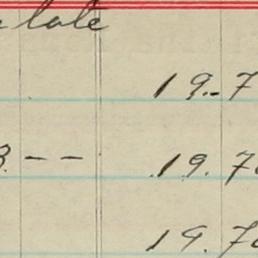 late
19.7
3 - - 19.7
19.7